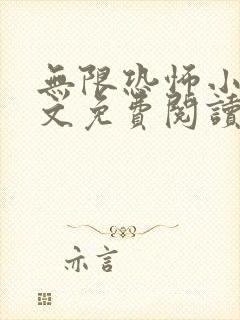 無限恐怖小
文免費閱讀
亦言